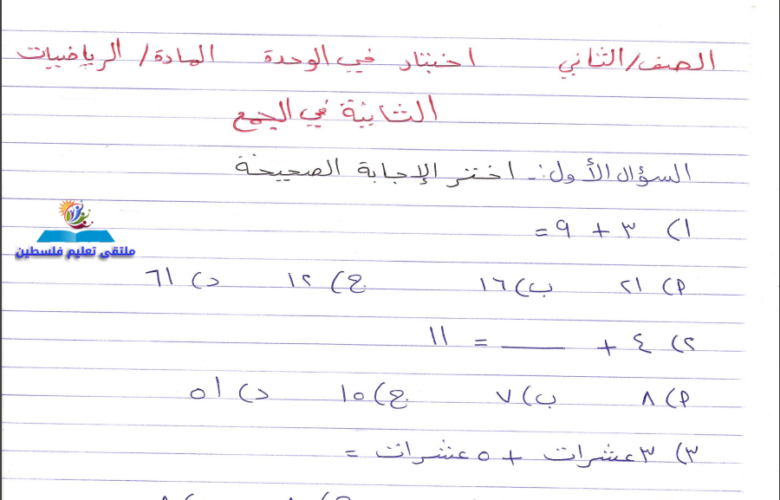 الصف/الثاني اختبار في الوحدة المادة/ الرياضيات
الثانية في الجمع
السؤال الأول:- اختر الإجابة الصحيحة
١) ٣ + ٩ =
ملتقى تعليم فلسطين
أ) ٢١ ب) ١٦ ج) ١٢ د) ٦١
٢) ٤ + ____ = ١١
أ) ٨ ب) ٧ ج) ١٥ د) ٥١
٣) ٣ عشرات + ٥ عشرات =